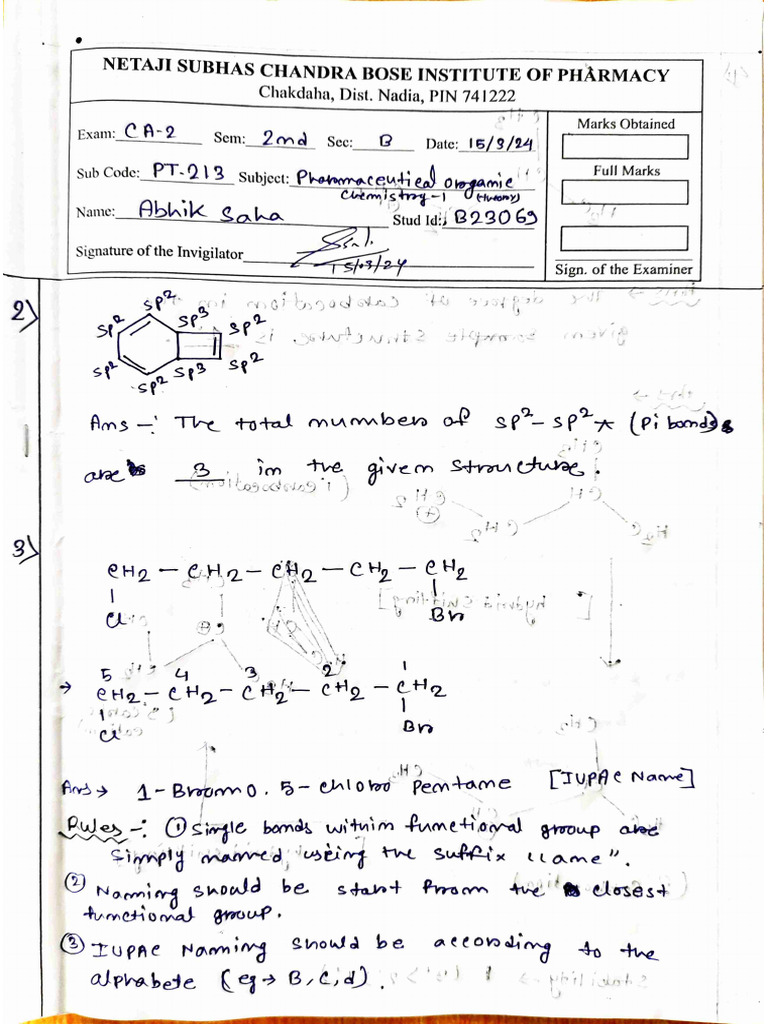 NETAJI SUBHAS CHANDRA BOSE INSTITUTE OF PHARMACY
Chakdaha, Dist. Nadia, PIN 741222
Exam: CA-2 Sem: 2nd Sec: B Date: 15/3/24
Marks Obtained
Full Marks
Sub Code: PT-213 Subject: Pharmaceutical organic
chemistry-1 (theory)
Name: Abhik Saha Stud Id: B23069
Signature of the Invigilator
15/03/24
Sign. of the Examiner
2)
sp2 sp3
sp2 sp2
sp2 sp2
sp2 sp3
Ans -: The total number of sp2-sp2 (Pi bond)s
are 3 in the given structure.
3)
CH2 - CH2 - CH2 - CH2 - CH2
Cl Br
→ 5 4 3 2 1
CH2 - CH2 - CH2 - CH2 - CH2
Cl Br
Ans → 1-Bromo. 5-chloro pentane [IUPAC Name]
Rules -: ① Single bonds within functional group are
simply named using the suffix "ane".
② Naming should be start from the closest
functional group.
③ IUPAC Naming should be according to the
alphabete (eg → B, C, d).